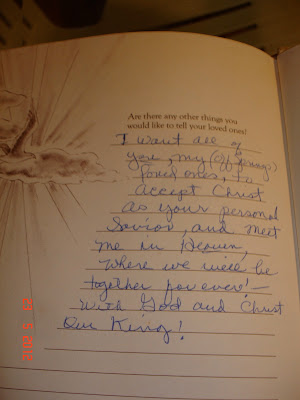 Are there any other things you
would like to tell your loved ones?
I want all of
you, my (offsprings)
loved ones, to
accept Christ
as your personal
Savior, and meet
me in Heaven,
where we will be
together forever! —
with God and Christ
Our King!